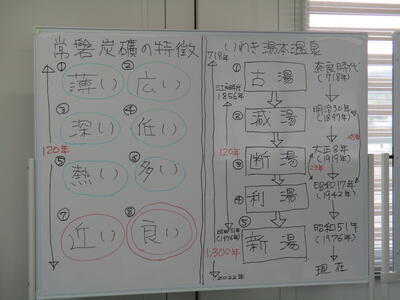 常磐炭礦の特徴
① 薄い
② 広い
③ 深い
④ 低い
120年
⑤ 熱い
⑥ 多い
⑦ 近い
⑧ 良い
いわき湯本温泉
718年
江戸時代
1856年
120年
昭和51年
(1976年)
1,300年
2022年
① 古湯
② 減湯
③ 断湯
④ 利湯
⑤ 新湯
奈良時代
(718年)
明治30年
(1897年)
大正8年
(1919年)
23年
昭和17年
(1942年)
昭和51年
(1976年)
現在